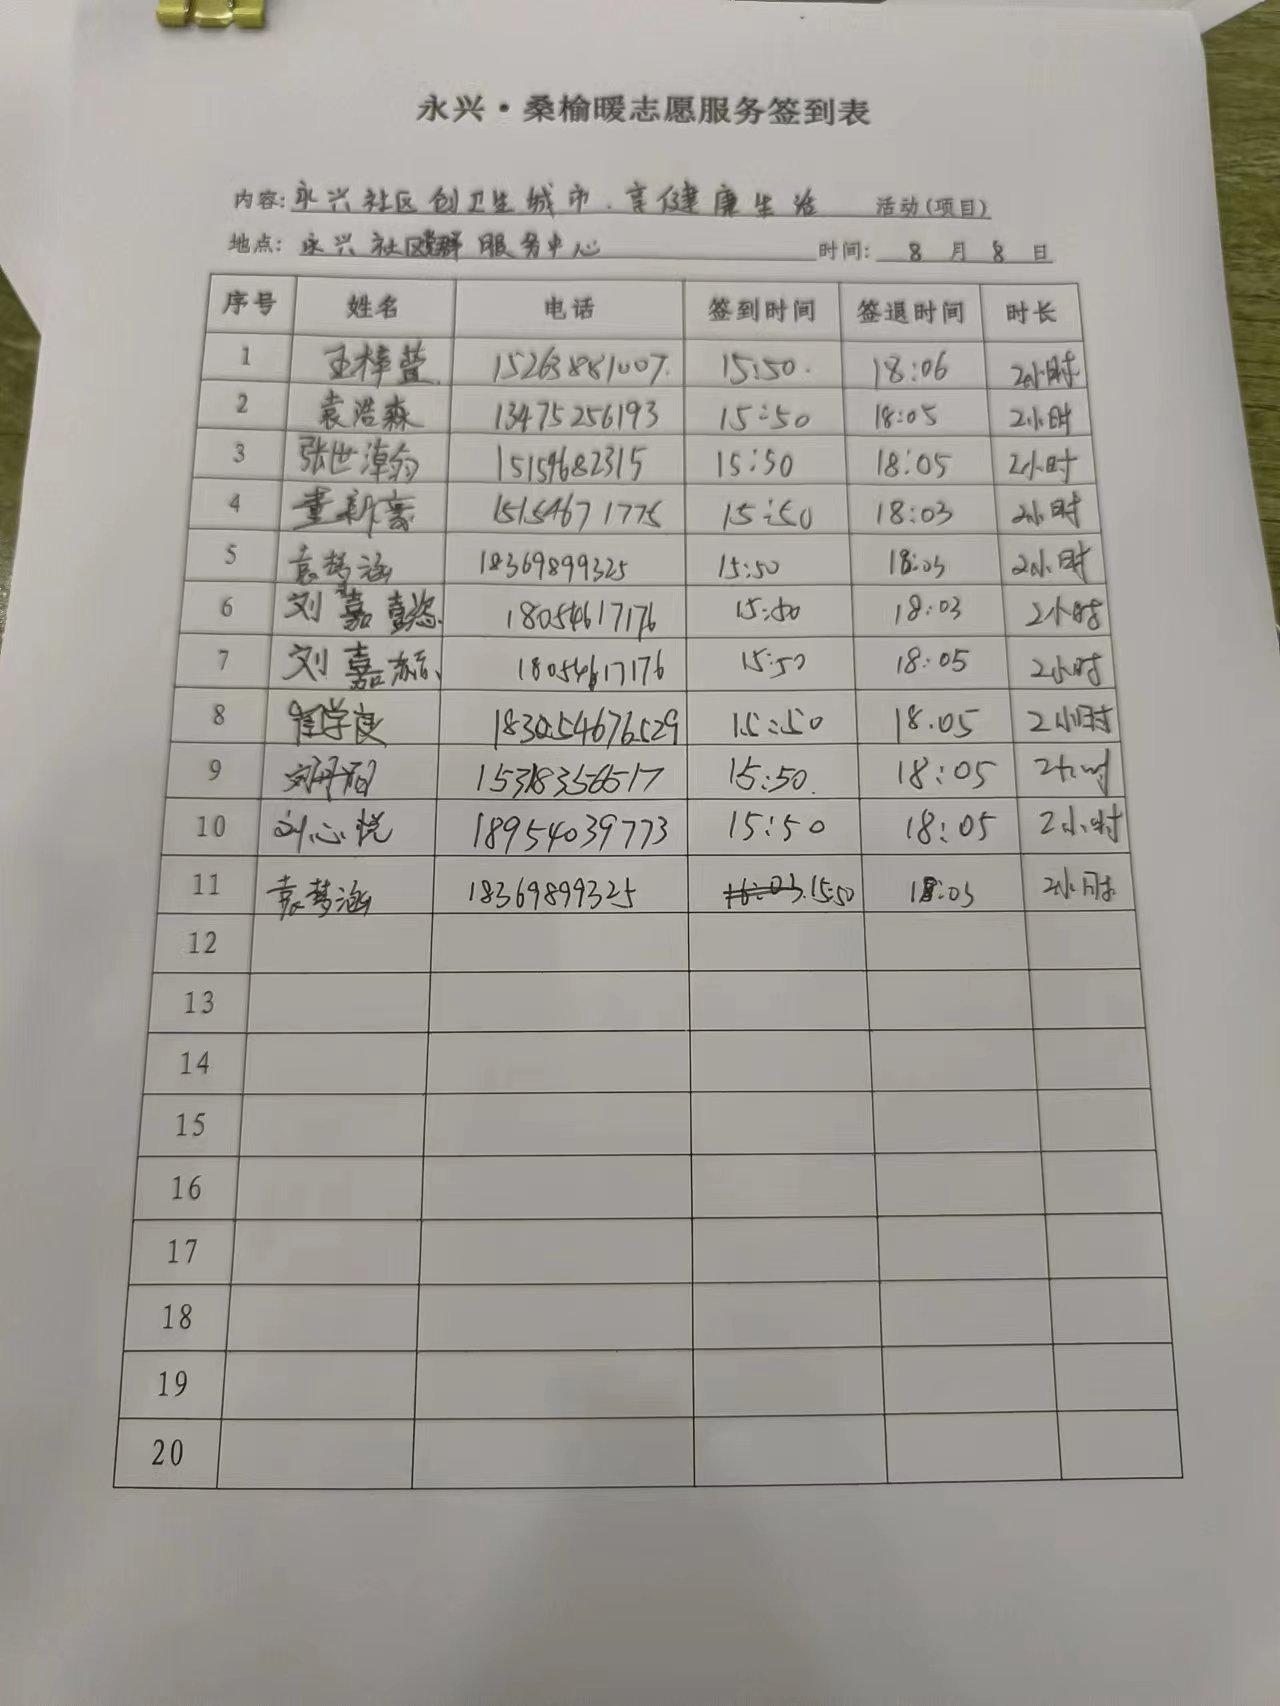 永兴·桑榆暖志愿服务签到表
内容: 永兴社区创卫生城市.享健康生活 活动(项目)
地点: 永兴社区党群服务中心 时间: 8 月 8 日
序号 姓名 电话 签到时间 签退时间 时长
1 王梓萱 15263881007. 15:50. 18:06 2小时
2 袁浩森 13475256193 15:50 18:05 2小时
3 张世 15159682315 15:50 18:05 2小时
4 董新 15154671775 15:50 18:03 2小时
5 袁梦涵 18369899325 15:50 18:03 2小时
6 刘嘉 18054617176 15:50 18:03 2小时
7 刘嘉 18054617176 15:50 18:05 2小时
8 学良 183054676529 15:50 18.05 2小时
9 15318356517 15:50. 18:05 2小时
10 刘心悦 18954039773 15:50 18:05 2小时
11 袁梦涵 18369899325 16:03.15:50 18:03 2小时
12
13
14
15
16
17
18
19
20